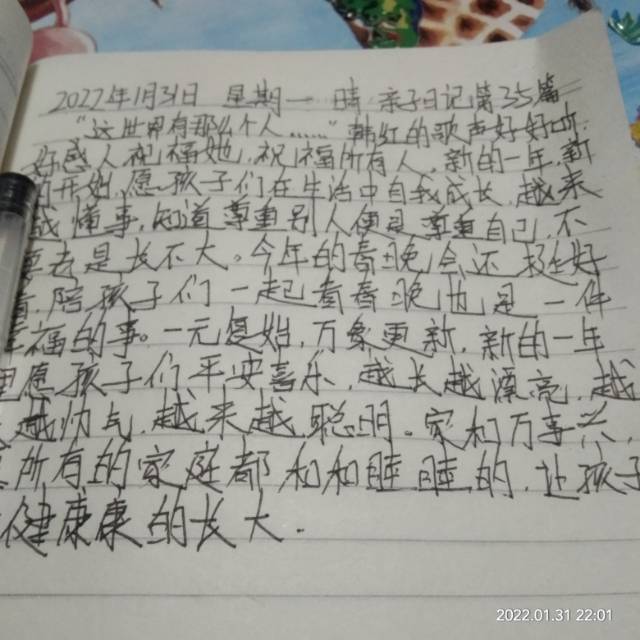 2022年1月31日 星期一 晴 亲子日记第35篇
"这世界有那么个人……"韩红的歌声好好听,
好感人祝福她,祝福所有人。新的一年,新
的开始,愿孩子们在生活中自我成长,越来
越懂事,知道尊重别人便是尊重自己,不
是总是长不大。今年的春晚会还挺好
看,陪孩子们一起看春晚也是一件
幸福的事。一元复始,万象更新,新的一年
愿孩子们平安喜乐,越长越漂亮,越
越帅气,越来越聪明。家和万事兴,
所有的家庭都和和睦睦的,让孩子
健康康的长大.
2022.01.31 22:01